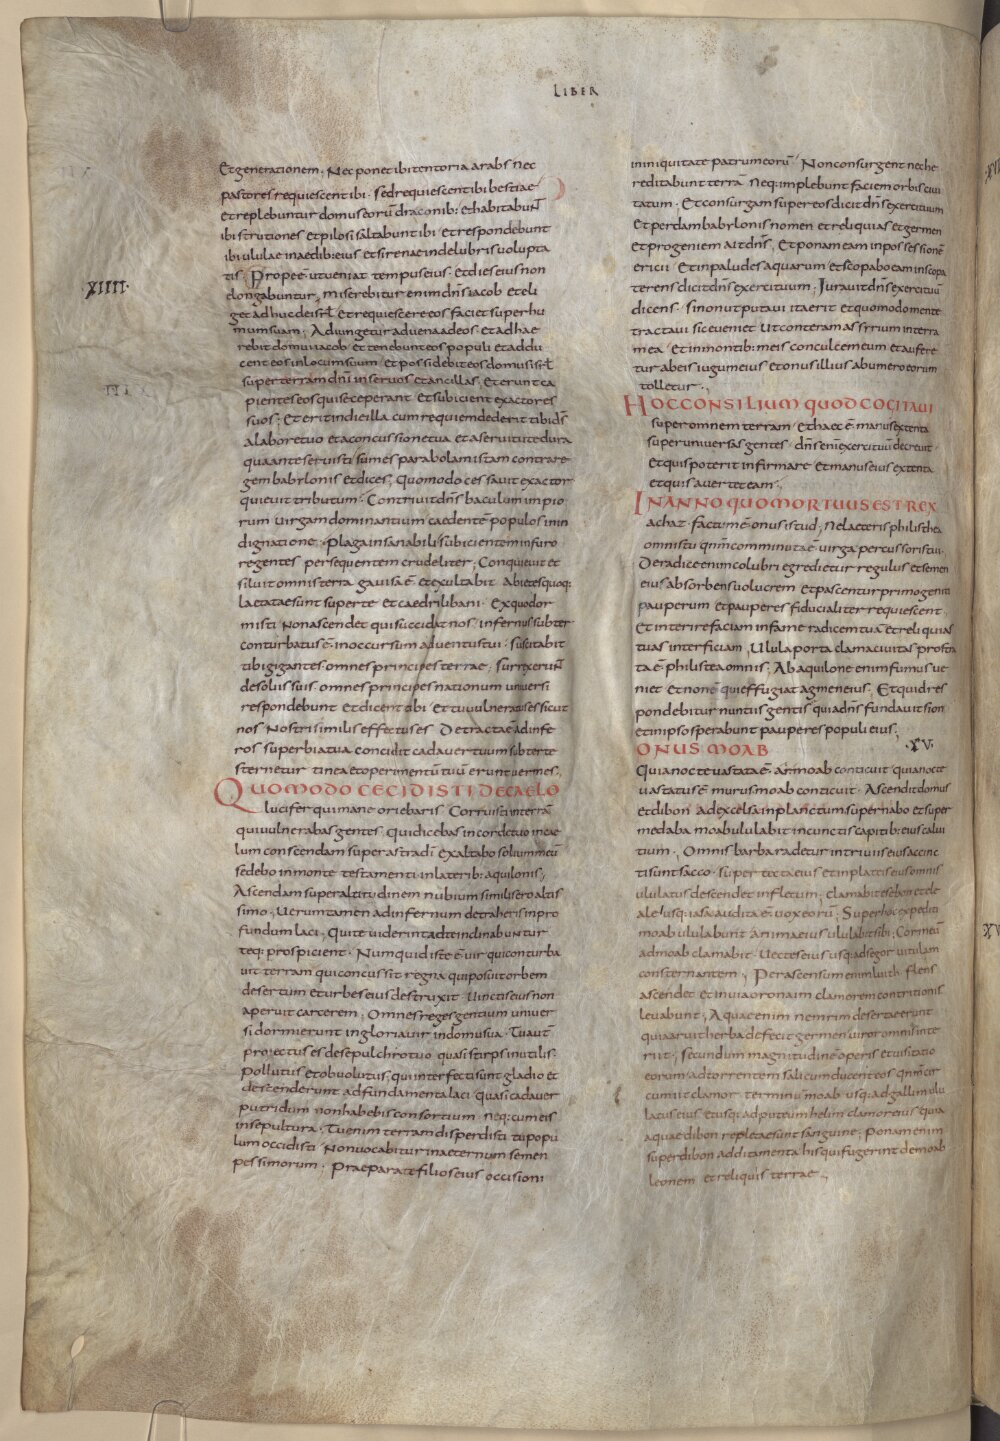 LIBER
Et generationem; Nec ponet ibi tentoria arabs nec
pastores requiescent ibi · sed requiescent ibi bestiae
et replebuntur domus eorū draconib: et habitabuñt
ibi strutiones et pilosi saltabunt ibi · Et respondebunt
ibi ululae in aedib: eius et sirenae in delubris uolupta
tis · Prope ē ut ueniat tempus eius · Et dies eius non
elongabuntur, miserebitur enim dn̄s iacob et eli
XIIII·
get adhuc de isrł Et requiescere eos faciet super hu
mum suam; Adiungetur aduena ad eos · et adhae
rebit domui iacob et tenebunt eos populi et addu
cent eos in locum suum et possidebit eos domus isrł
super terram dn̄i in seruos et ancillas · Et erunt ca
pientes eos qui se ceperant et subicient exactores
suos; Et erit in die illa cum requiem dederit tibi dn̄s
a labore tuo et a concussione tua et a seruitute dura
qua ante seruisti sumes parabolam istam contra re
gem babylonis et dices; Quomodo cessauit exactor
quieuit tributum · Contriuit dn̄s baculum impio
rum uirgam dominantium caedentē populos in in
dignatione · Plaga insanabili subicientem in furo
re gentes persequentem crudeliter; Conquieuit et
siluit omnis terra gauisa ē et exultabit abietes quoq;
laetatae sunt super te et caedri libani · Ex quo dor
misti non ascendet qui succidat nos · infernus subter
conturbatus ē in occursum aduentus tui · suscitabit
tibi gigantes · omnes principes terrae, surrexeruñt
de soliis suis · omnes principes nationum uniuersi
respondebunt et dicent tibi · Et tu uulneratus es sicut
nos nostri similis effectus es Detracta ē ad infe
ros superbia tua concidit cadauer tuum subter te
sternetur tinea et operimentū tuū erunt uermes,
QUOMODO CECIDISTI DE CAELO
lucifer qui mane oriebaris Corruisti in terrā
qui uulnerabas gentes, Qui dicebas in corde tuo in cae
lum conscendam super astra dī exaltabo solium meū
sedebo in monte testamenti in laterib: aquilonis,
Ascendam super altitudinem nubium similis ero altis
simo, Uerumtamen ad infernum detraheris in pro
fundum laci, Qui te uiderint ad te inclinabuntur
teq: prospicient · Numquid iste ē uir qui conturba
uit terram qui concussit regna qui posuit orbem
desertum et urbes eius destruxit uinctis eius non
aperuit carcerem; Omnes reges gentium uniuer
si dormierunt in gloria uir in domu sua · Tu autē
proiectus es de sepulchro tuo quasi stirps inutilis
pollutus et obuolutus; qui interfecti sunt gladio et
descenderunt ad fundamenta laci quasi cadauer
putridum non habebis consortium neq: cum eis
in sepultura, Tu enim terram disperdisti tu popu
lum occidisti Non uocabitur in aeternum semen
pessimorum; Praeparate filios eius occisioni
in iniquitate patrum eorū Non consurgent nec he
reditabunt terrā neq: implebunt faciem orbis ciui
tatum · Et consurgam super eos dicit dn̄s exercituum
Et perdam babylonis nomen et reliquias et germen
et progeniem ait dn̄s, Et ponam eam in possessionē
ericii · Et in paludes aquarum et scopabo eam in scopa
terens dicit dn̄s exercituum; Iurauit dn̄s exercituū
dicens · si non ut putaui ita erit et quomodo mente
tractaui sic eueniet ut conteram assyrium in terra
mea · Et in montib: meis conculcem eum et aufere
tur ab eis iugum eius et onus illius ab umero eorum
tolletur ;
HOC CONSILIUM QUOD COGITAUI
super omnem terram · Et haec ē manus extenta
super uniuersas gentes · dn̄s enim exercituū decreuit
Et quis poterit infirmare Et manus eius extenta
et quis auertet eam ;
IN ANNO QUO MORTUUS EST REX
achaz · factum ē onus istud; Ne laeteris philisthea
omnis tu qnm̄ comminuta ē uirga percussoris tui ·
De radice enim colubri egredietur regulus et semen
eius absorbens uolucrem Et pascentur primogeniti
pauperum et pauperes fiducialiter requiescent
Et interire faciam in fame radicem tuā et reliquias
tuas interficiam, Ulula porta clama ciuitas prostra
ta ē philistea omnis, Ab aquilone enim fumus ue
niet et non ē qui effugiat agmen eius, Et quid res
pondebitur nuntiis gentis quia dn̄s fundauit sion
et in ipso sperabunt pauperes populi eius;
ONUS MOAB ·XV·
Quia nocte uastata ē ar moab conticuit quia nocte
uastatus ē murus moab conticuit · Ascendit domus
et dibon ad excelsa in planctum super nabo et super
medaba moab ululabit in cunctis capitib: eius calui
tium, Omnis barba radetur in triuiis eius accinc
ti sunt sacco · super tecta eius et in plateis eius omnis
ululatus descendet in fletum, clamabit esebon et ele
ale usq: iasa audita ē uox eorū; Super hoc expediti
moab ululabunt anima eius ululabit sibi; Cor meū
ad moab clamabit · Uectes eius usq: ad segor uitulam
consternantem, Per ascensum enim luith flens
ascendet et in uia oronaim clamorem contritionis
leuabunt; Aquae enim nemrim desertae erunt
quia aruit herba defecit germen uiror omnis inte
riit; secundum magnitudinē operis et uisitatio
eorum ad torrentem salicum ducent eos qnm̄ cir
cumiit clamor terminū moab usq: ad gallim ulu
latus eius et usq: ad puteum helim clamor eius quia
aquae dibon repletae sunt sanguine; Ponam enim
super dibon additamenta his qui fugerint de moab
leonem et reliquis terrae ;